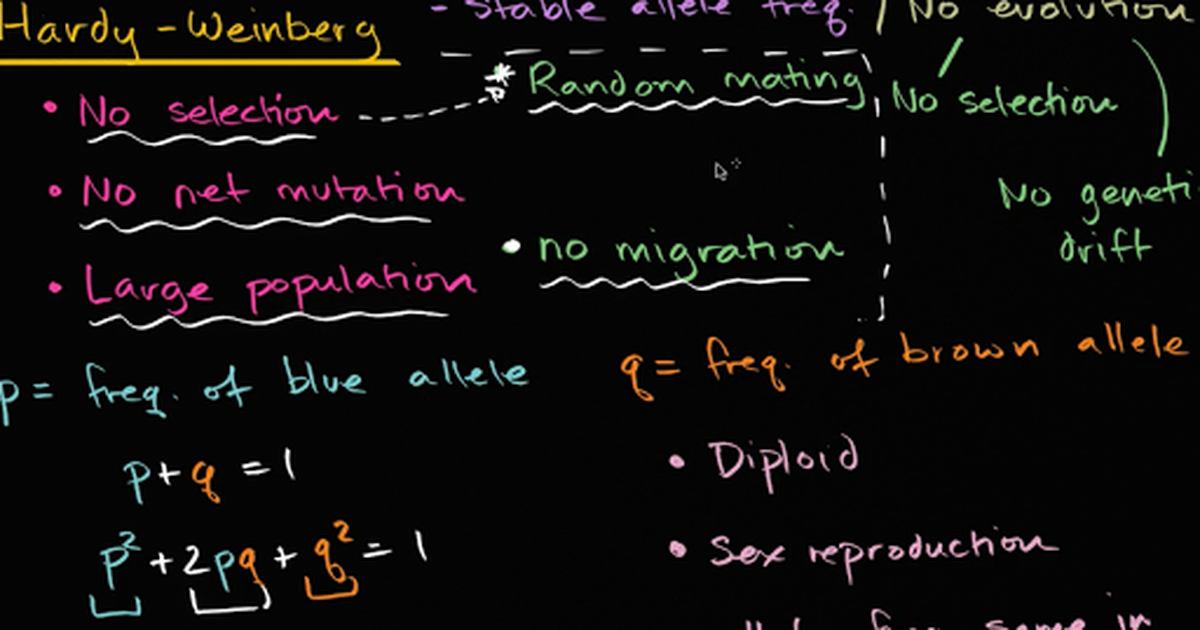 Hardy-Weinberg
- Stable allele freq. / No evolution
• No selection
* Random mating
No selection
• No net mutation
No geneti
drift
• no migration
• Large population
p = freq. of blue allele
q = freq. of brown allele
p + q = 1
• Diploid
p² + 2pq + q² = 1
• Sex reproduction
same in